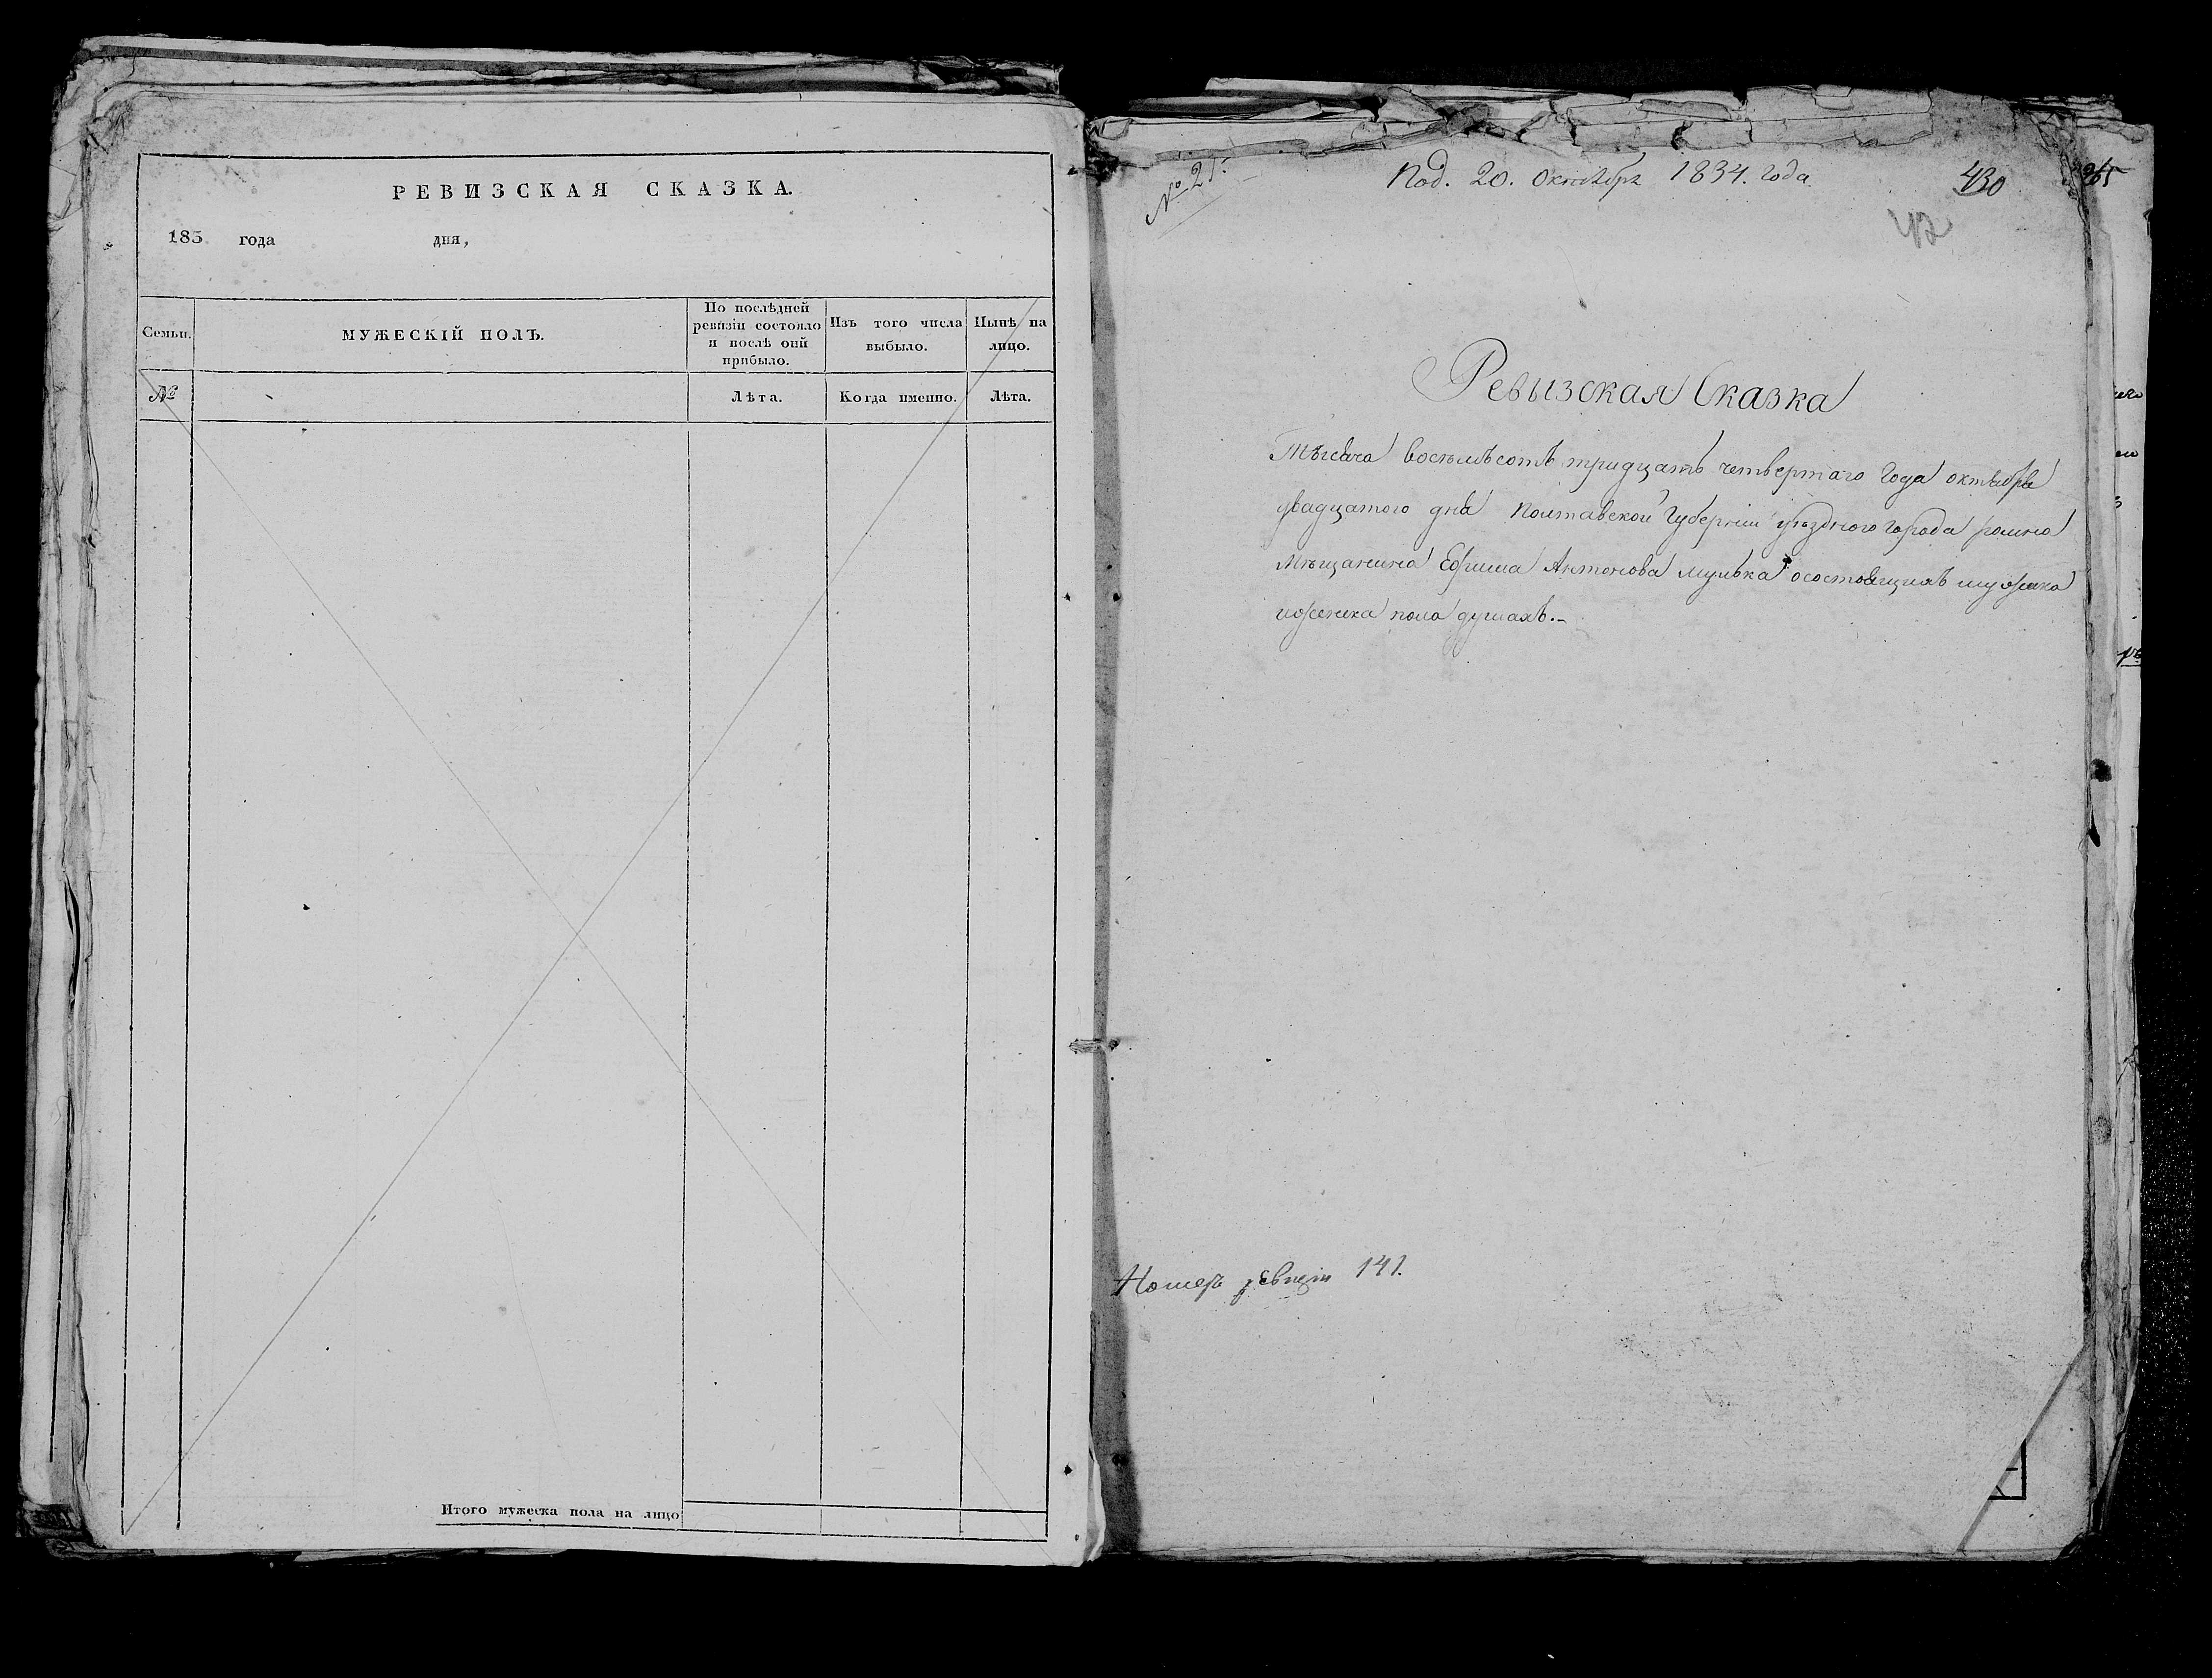 РЕВИЗСКАЯ СКАЗКА.
183 года дня,
Семьи.
МУЖЕСКІЙ ПОЛЪ.
По послѣдней
ревизіи состояло
и послѣ оній
прибыло.
Изъ того числа
выбыло.
Нынѣ на
лицо.
№
Лѣта.
Когда именно.
Лѣта.
Итого мужеска пола на лицо
Под. 20. октебря 1834. года
430
42
Ревызская Сказка
Тысеча восемьсотъ тридцать четвертаго года октебря
двадцатого дня Полтавской Губерніи уѣздного города ромна
Мѣщанина Ефима Антонова мулька осостоящихъ мужска
иженска пола душахъ.-
Номеръ ревизіи 141.